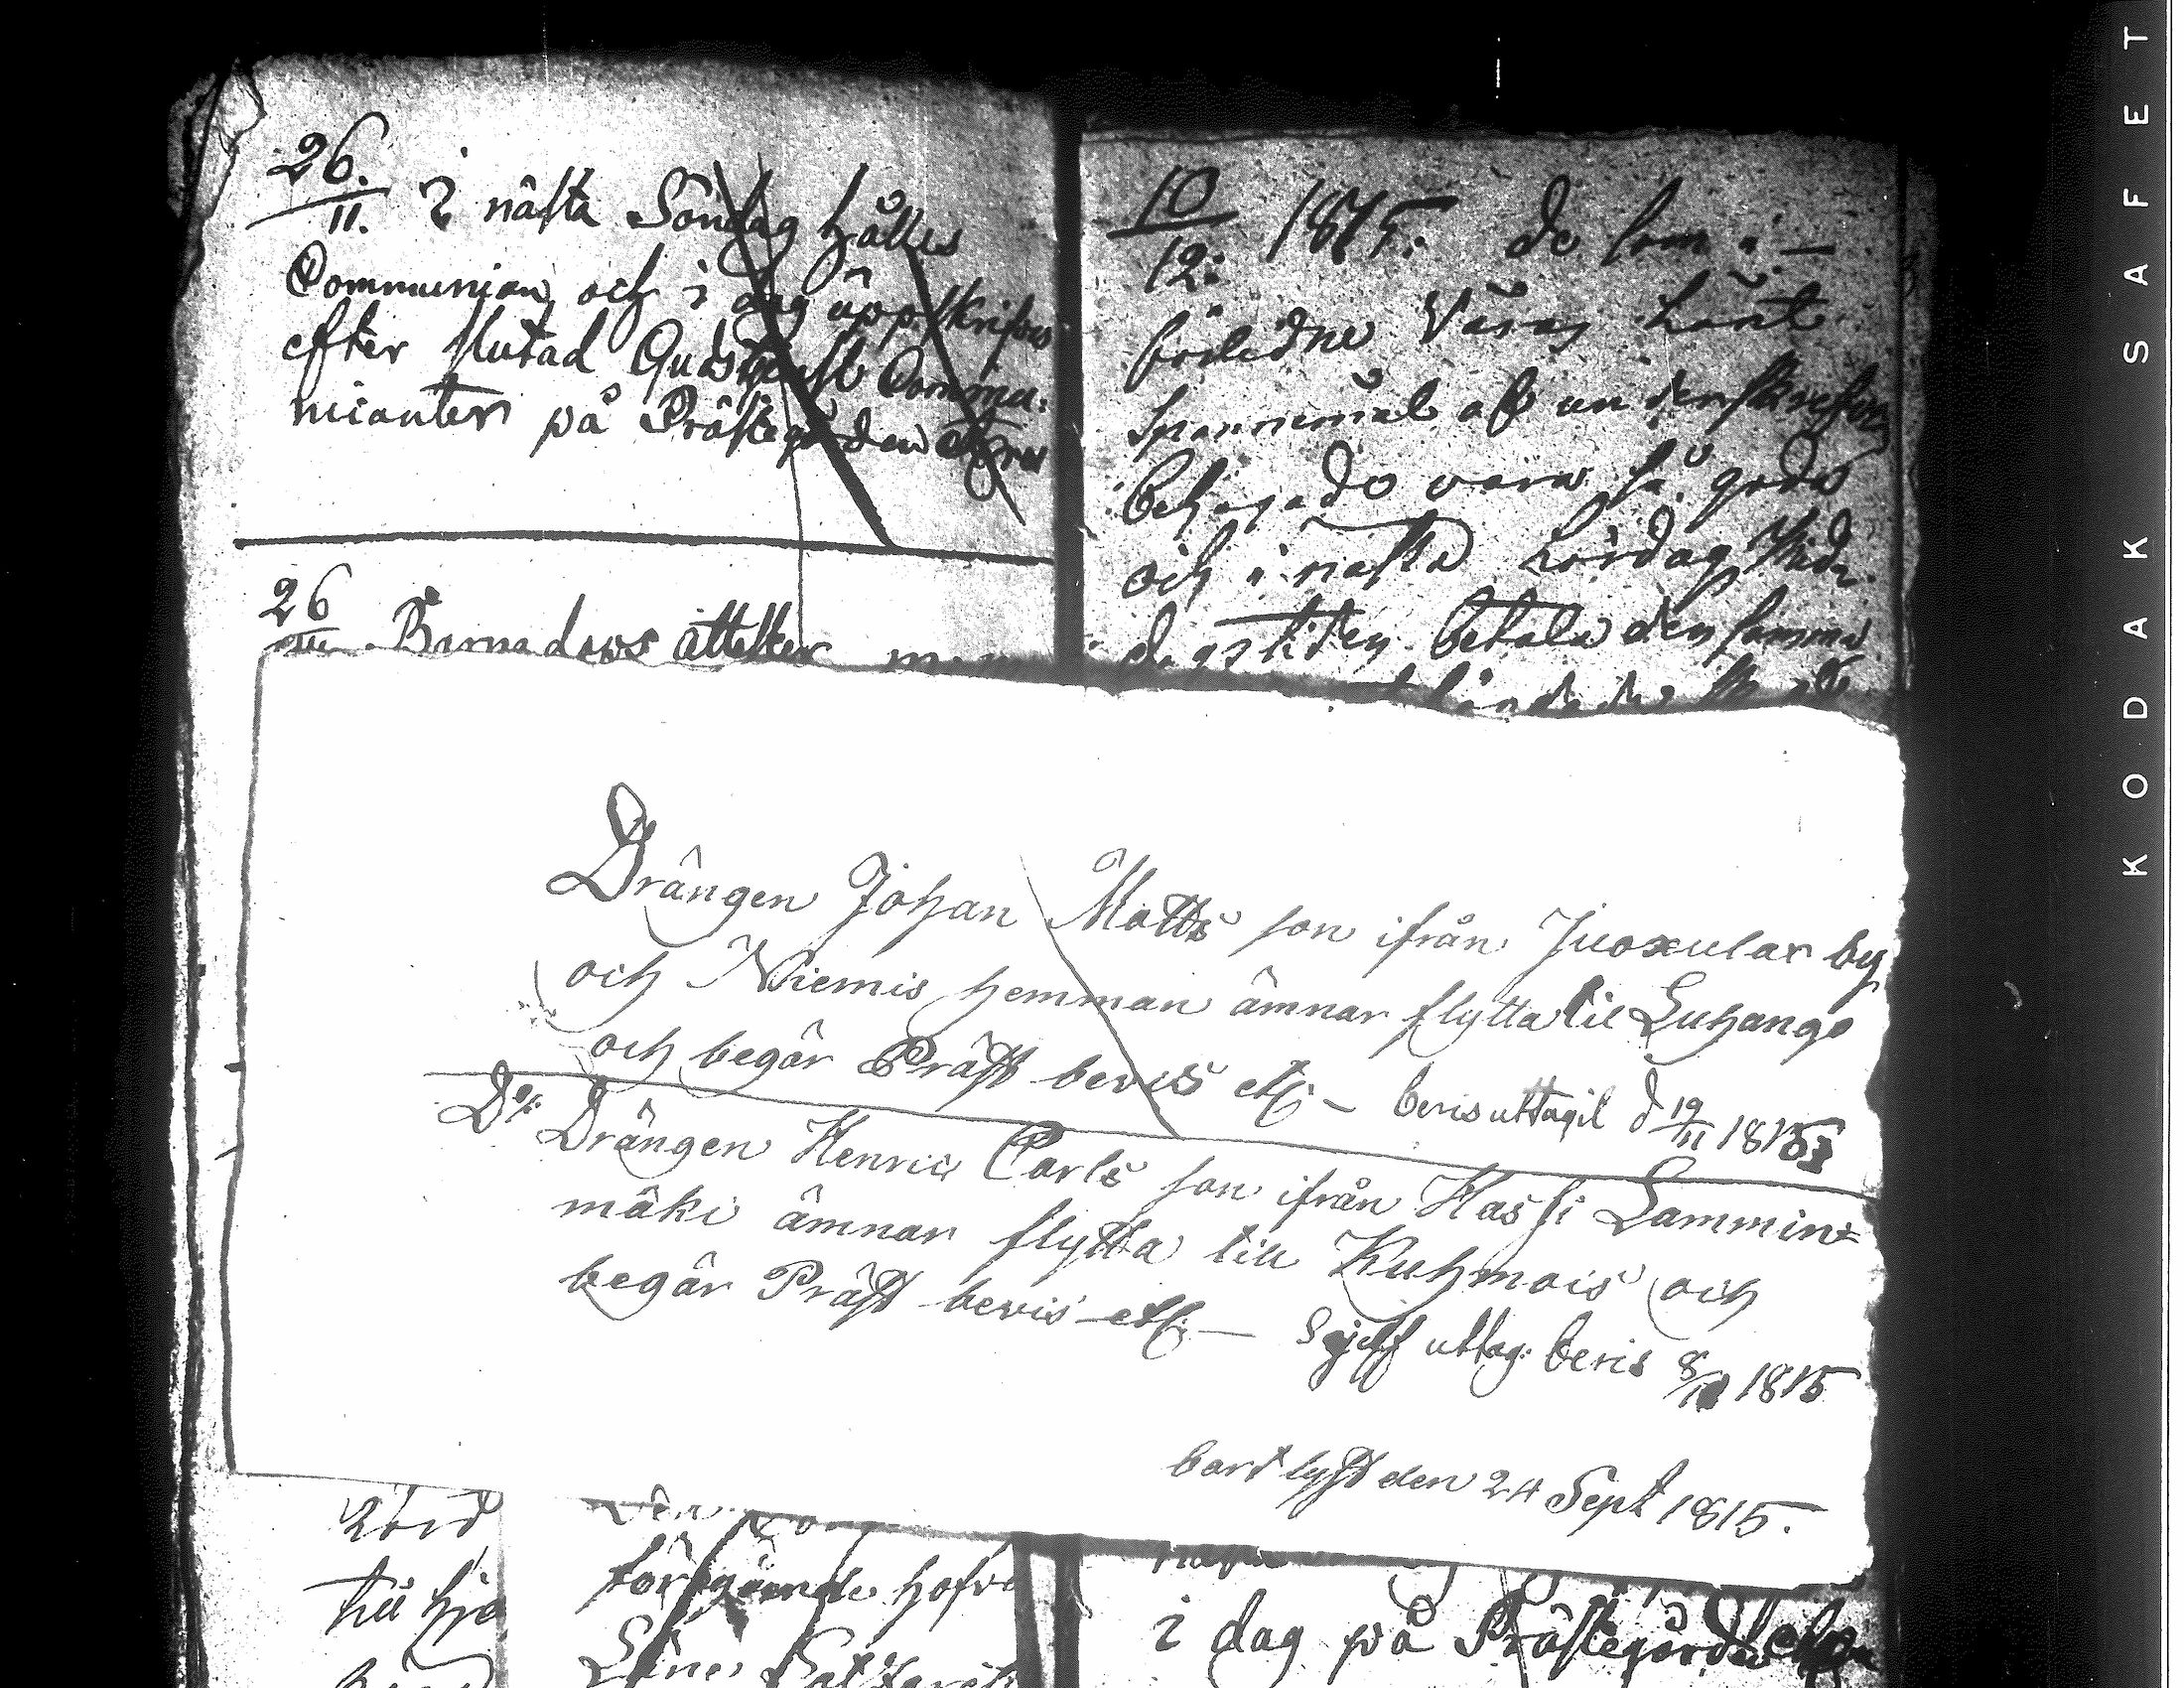 26.
11. I nästa Söndag hålles
Communion och i dag uppskrifves
efter slutad Gudstjenst Commu:
nicanter på Prästegården
26
Barnadops attester
10
12. 1815. de som i
förledne Våras lånt
Spannemål af undertecknad
behagade vara så goda
och i nästa Lördag Midda
dags tiden betala densamma
Drängen Johan Matts son ifrån Juoxular by
och Niemis hemman ämnar flytta til Luhango
och begär Präst bevis etc: – bevis uttagit d 19/11 1815
Do: Drängen Henric Carls son ifrån Hassi Lammin=
mäki ämnar flytta till Kuhmois och
begär Präst bevis etc: – sjelf uttag: bevis 8/ 1815
bort lyst den 24 Sept 1815.
till
föregående
i dag på Prästegården
KODAK SAFET